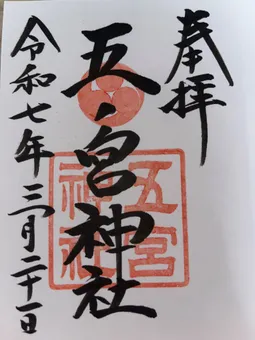 奉拝
五ノ宮神社
令和七年三月二十一日
五宮
神社